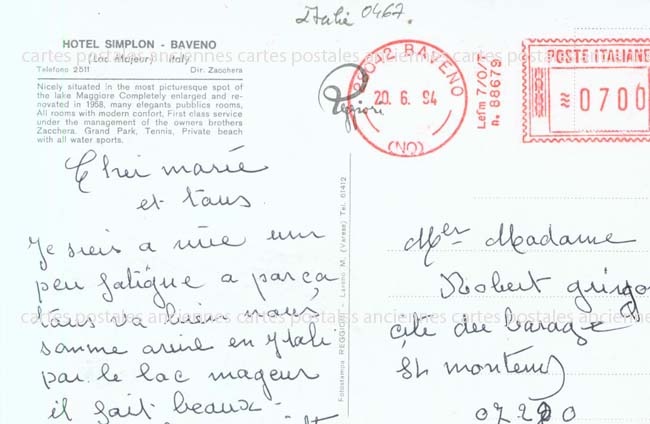 Italie 0467.
HOTEL SIMPLON - BAVENO
(Lac Majeur) Italy
Telefono 2511 Dir. Zacchera
Nicely situated in the most picturesque spot of
the lake Maggiore Completely enlarged and re-
novated in 1958, many elegants pubblics rooms,
All rooms with modern confort, First class service
under the management of the owners brothers
Zacchera. Grand Park, Tennis, Private beach
with all water sports.
cartes postales anciennes cartes postales anciennes cartes postales anciennes
28042 BAVENO
20. 6. 94
(NO)
Reggiori
n. 88679
POSTE ITALIANE
0700
Cher marie
et taus
Je suis a mie un
peu fatigue a parça
taus va bien naus
somme arivé en Itali
par le lac mageur
il fait beaux
Fotostampa REGGIORI - Laveno M. (Varese) Tel. 61412
Mer Madame
Robert
cité du barage
St montent
07220
cartes postales anciennes cartes postales anciennes cartes postales anciennes